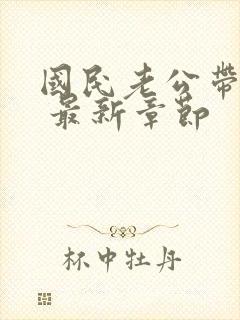 國民老公帶
最新章節
杯中牡丹